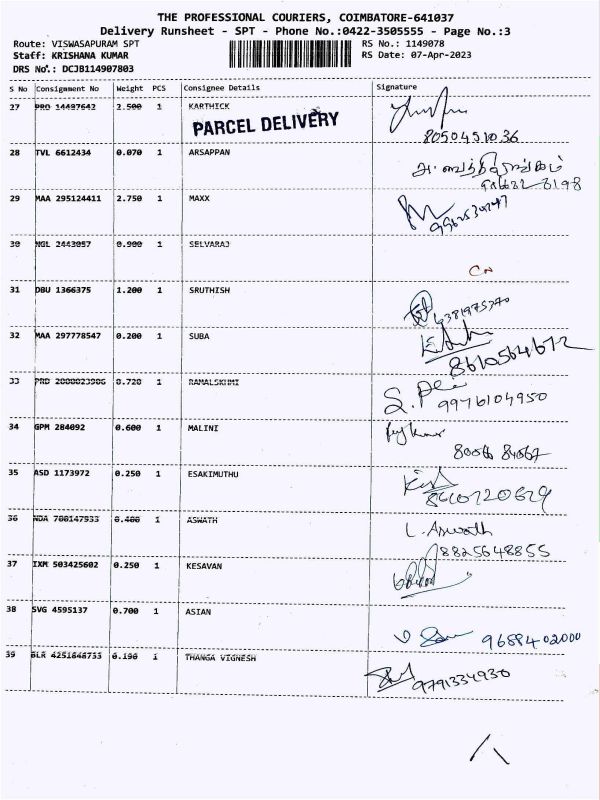 THE PROFESSIONAL COURIERS, COIMBATORE-641037
Delivery Runsheet - SPT - Phone No.:0422-3505555 - Page No.:3
Route: VISWASAPURAM SPT RS No.: 1149078
Staff: KRISHANA KUMAR RS Date: 07-Apr-2023
DRS No.: DCJB114907803
S No Consignment No Weight PCS Consignee Details Signature
27 PRO 14487642 2.500 1 KARTHICK
PARCEL DELIVERY
8050451036
28 TVL 6612434 0.070 1 ARSAPPAN
29 MAA 295124411 2.750 1 MAXX
30 NGL 2443057 0.900 1 SELVARAJ
CN
31 DBU 1366375 1.200 1 SRUTHISH
6381975370
32 MAA 297778547 0.200 1 SUBA
8610564672
33 PRD 2000023906 0.720 1 RAMALSKHMI
9976104950
34 GPM 284092 0.600 1 MALINI
35 ASD 1173972 0.250 1 ESAKIMUTHU
8610720629
36 NDA 700147933 0.400 1 ASWATH
L. Aswath
8825648855
37 IXM 503425602 0.250 1 KESAVAN
38 SVG 4595137 0.700 1 ASIAN
9688402000
39 BLR 4251646753 0.190 1 THANGA VIGNESH
9791334930